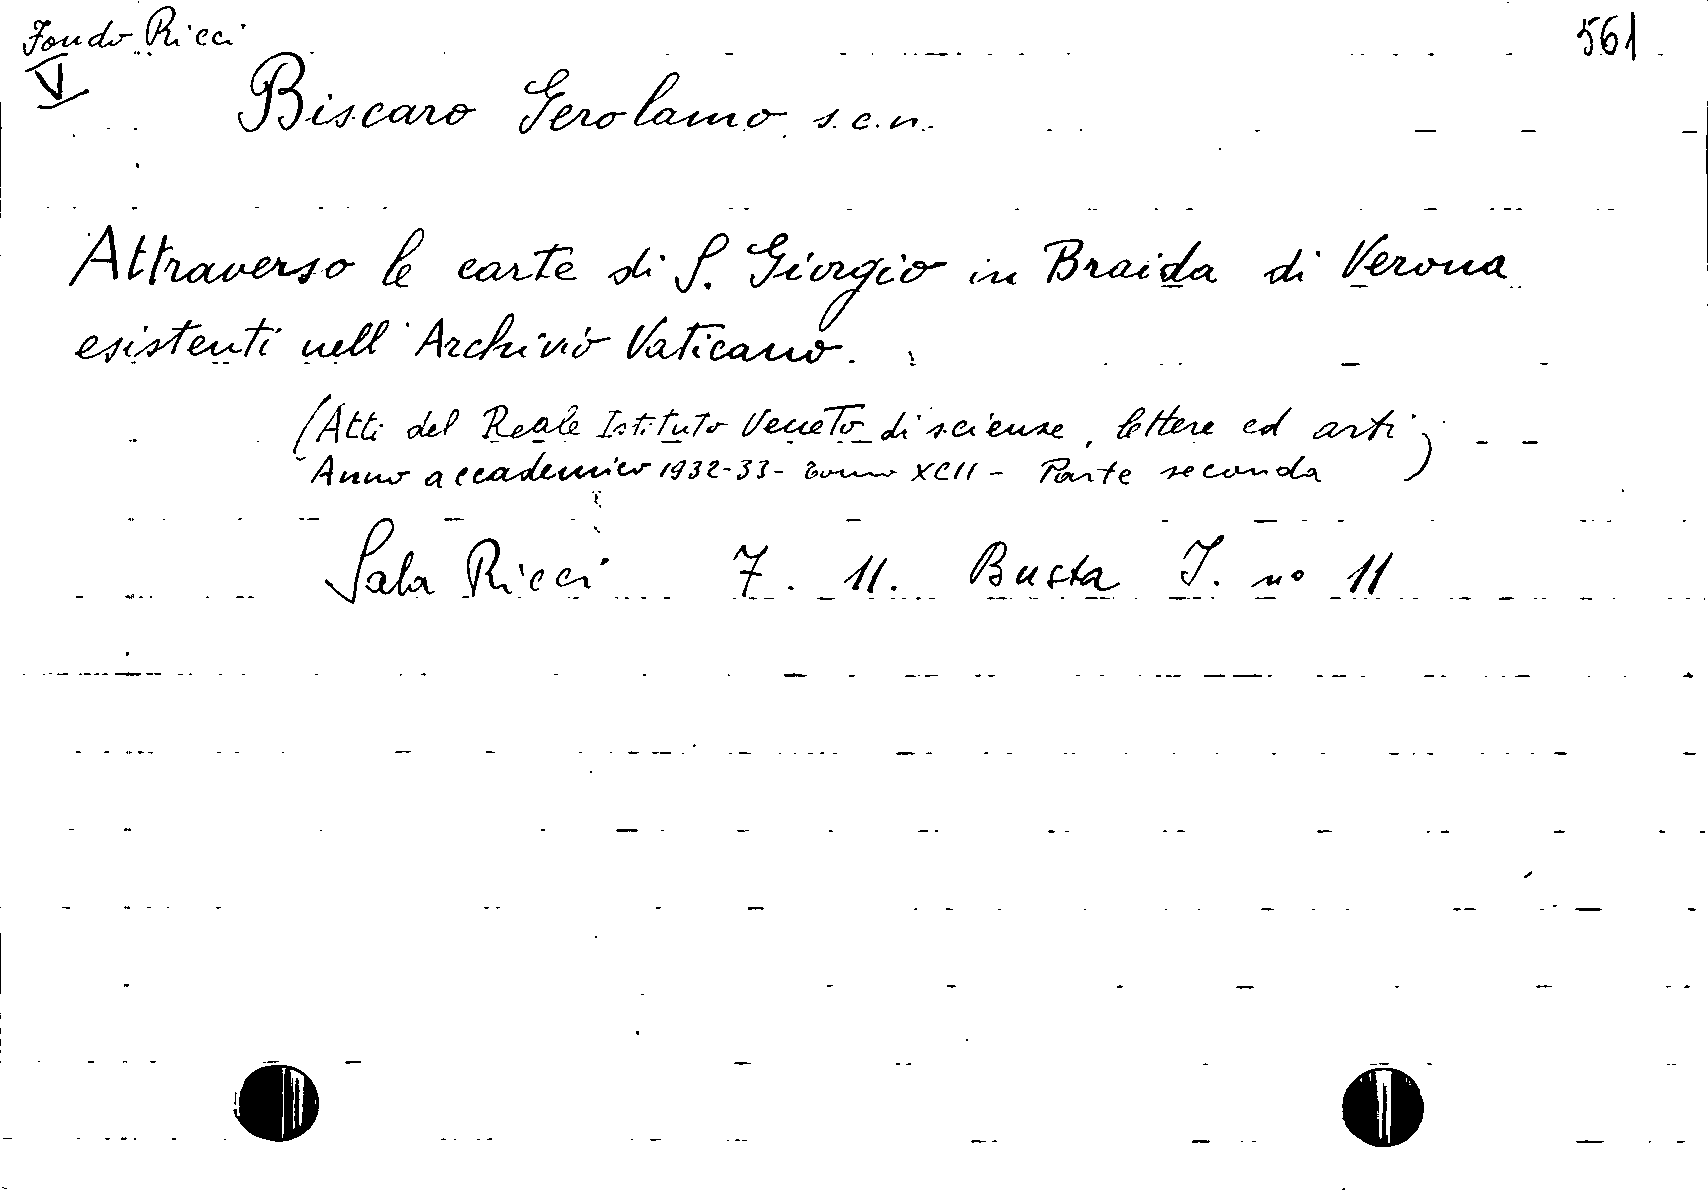 Fondo Ricci
V
561
Biscaro Gerolamo s.c.n.
Attraverso le carte di S. Giorgio in Braida di Verona
esistenti nell'Archivio Vaticano.
(Atti del Reale Istituto Veneto di scienze, lettere ed arti
Anno accademico 1932-33 - tomo XCII - Parte seconda)
Sala Ricci 7. 11. Busta I. no 11